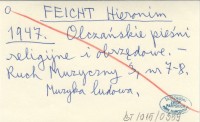 FEICHT Hieronim
1947. Olczańskie pieśni
religijne i obrzędowe. –
Ruch Muzyczny 3, nr 7-8.
Muzyka ludowa,